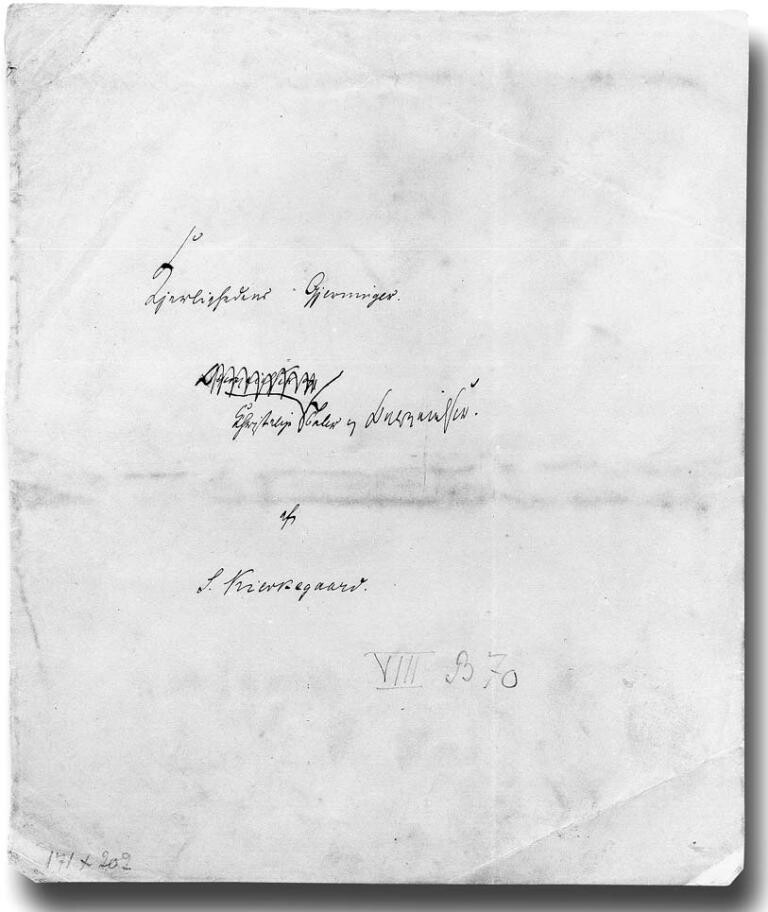 Kjerlighedens Gjerninger.
Christelige Taler og
af
S. Kierkegaard.
VIII B 70
171 x 202